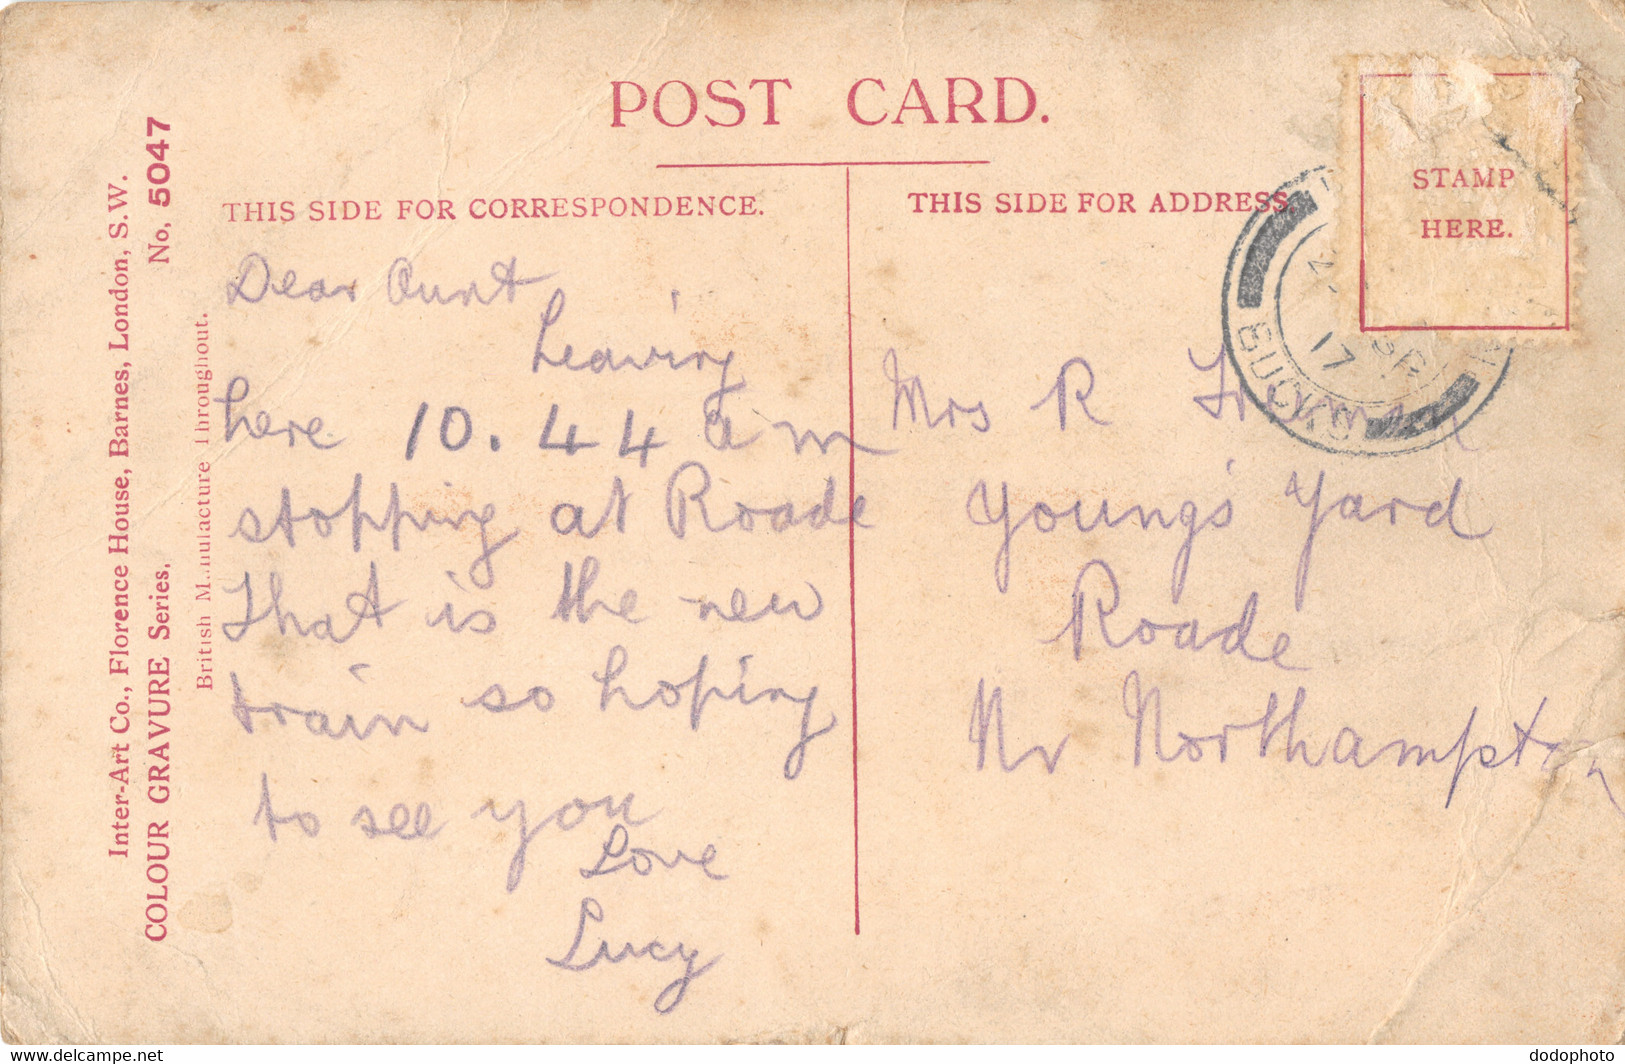 POST CARD.
THIS SIDE FOR CORRESPONDENCE.
THIS SIDE FOR ADDRESS.
STAMP
HERE.
Inter-Art Co., Florence House, Barnes, London, S.W.
COLOUR GRAVURE Series. No. 5047
British Manufacture Throughout.
Dear Aunt
Leaving
here 10.44 am
stopping at Roade
That is the new
train so hoping
to see you
Love
Lucy
Mrs R
Young's Yard
Roade
Nr Northampton
17
BUCKS
www.delcampe.net
dodophoto